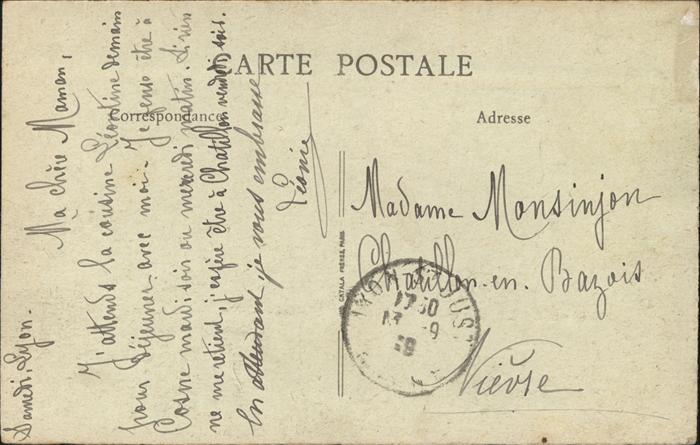 CARTE POSTALE
Correspondance
Adresse
Samedi, Lyon.
Ma chère Maman,
J'attends la cousine Léontine demain
pour déjeuner avec moi. Je pense être à
Cosne mardi soir ou mercredi matin. Si rien
ne me retient, j'espère être à Chatillon vendredi soir.
En attendant je vous embrasse
Léonie
CATALA FRÈRES, PARIS
Madame Monsinjon
Chatillon-en-Bazois
Nièvre